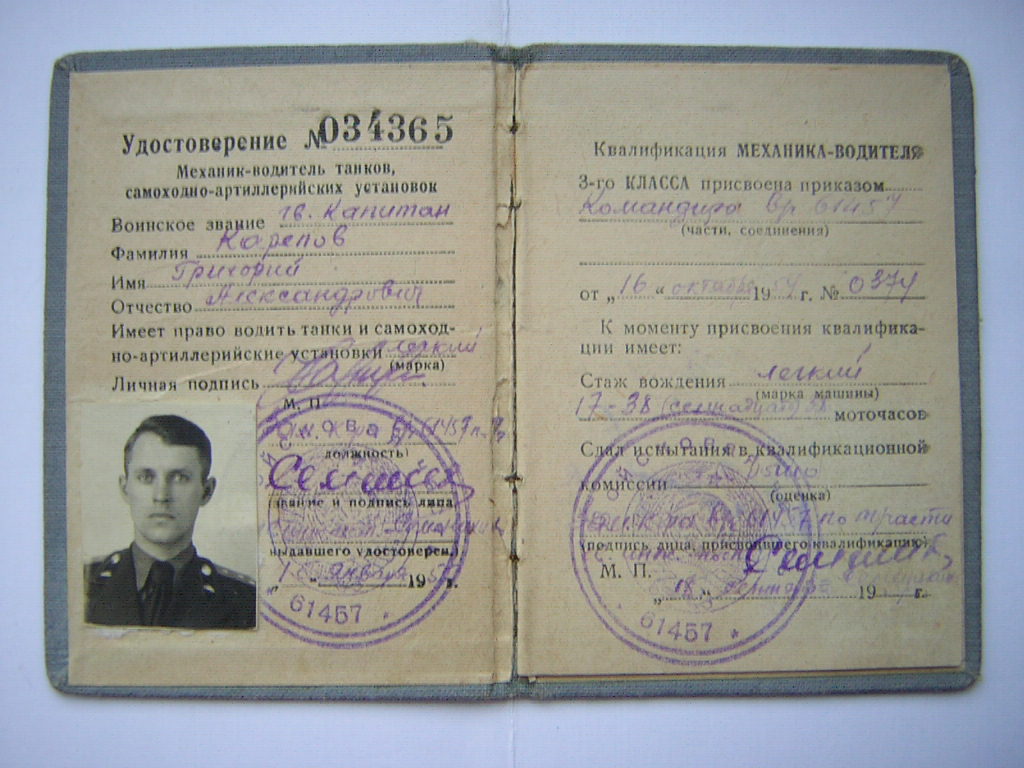 Удостоверение № 034365
Механик-водитель танков,
самоходно-артиллерийских установок
Воинское звание гв. Капитан
Фамилия
Имя Григорий
Отчество Александрович
Имеет право водить танки и самоход-
но-артиллерийские установки легкий
(марка)
Личная подпись
М. П.
должность)
(звание и подпись лица,
выдавшего удостоверен.)
января 19 г.
61457
Квалификация МЕХАНИКА-ВОДИТЕЛЯ
3-го КЛАССА присвоена приказом
Командира 61457
(части, соединения)
от „16“ октября 1954 г. № 0374
К моменту присвоения квалифика-
ции имеет:
Стаж вождения легкий
(марка машины)
17-38 моточасов
Сдал испытания в квалификационной
комиссии
(оценка)
61457 по
(подпись лица, присвоившего квалификацию)
М. П.
„18“ 19 г.
61457